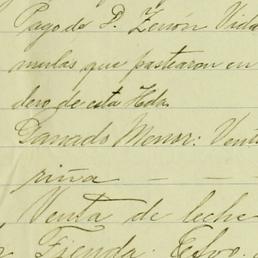 Pago de D. Zenón Vida
mulas que pastearon en
dero de esta Hda.
Ganado Menor: Vent
riña — —
Venta de leche
Tienda. Efvo.